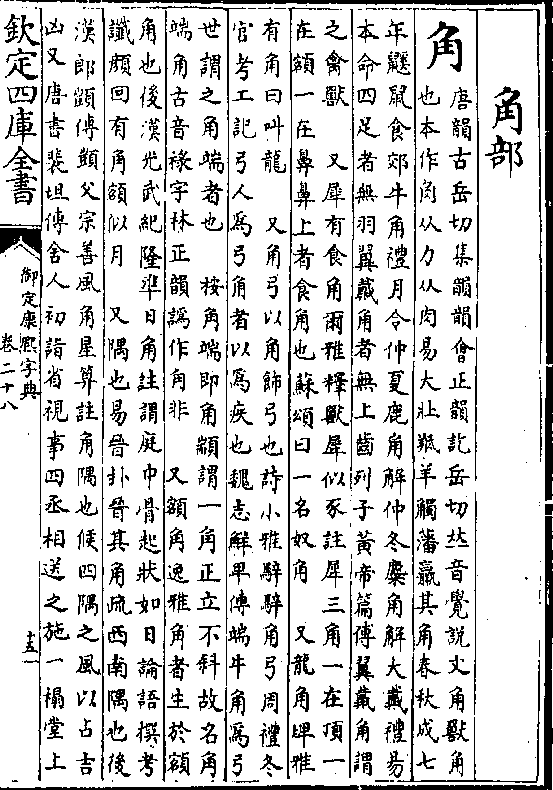 角部
角
唐韻古岳切集韻韻會正韻訖岳切𠀤音覺説文角獸角
也本作𧢲从力从肉易大壯羝羊觸藩羸其角春秋成七
年鼷鼠食郊牛角禮月令仲夏鹿角解仲冬麋角解大戴禮易
本命四足者無羽翼戴角者無上齒列子黄帝篇傅翼戴角謂
之禽獸　又犀有食角爾雅釋獸犀似豕註犀三角一在頂一
在額一在鼻鼻上者食角也蘇頌曰一名奴角　又龍角埤雅
有角曰虯龍　又角弓以角飾弓也詩小雅騂騂角弓周禮冬
官考工記弓人爲弓角者以爲疾也魏志鮮卑傳端牛角爲弓
世謂之角端者也　按角端即角𧤗謂一角正立不斜故名角
端角古音祿字林正韻譌作角非　又額角逸雅角者生於額
角也後漢光武紀隆準日角註謂庭中骨起狀如日論語撰考
讖顏回有角額似月　又隅也易晉卦晉其角疏西南隅也後
漢郎顗傳顗父宗善風角星算註角隅也候四隅之風以占吉
凶又唐書裴坦傳舍人初詣省視事四丞相送之施一榻堂上
欽定四庫全書
御定康熙字典
卷二十八
十五